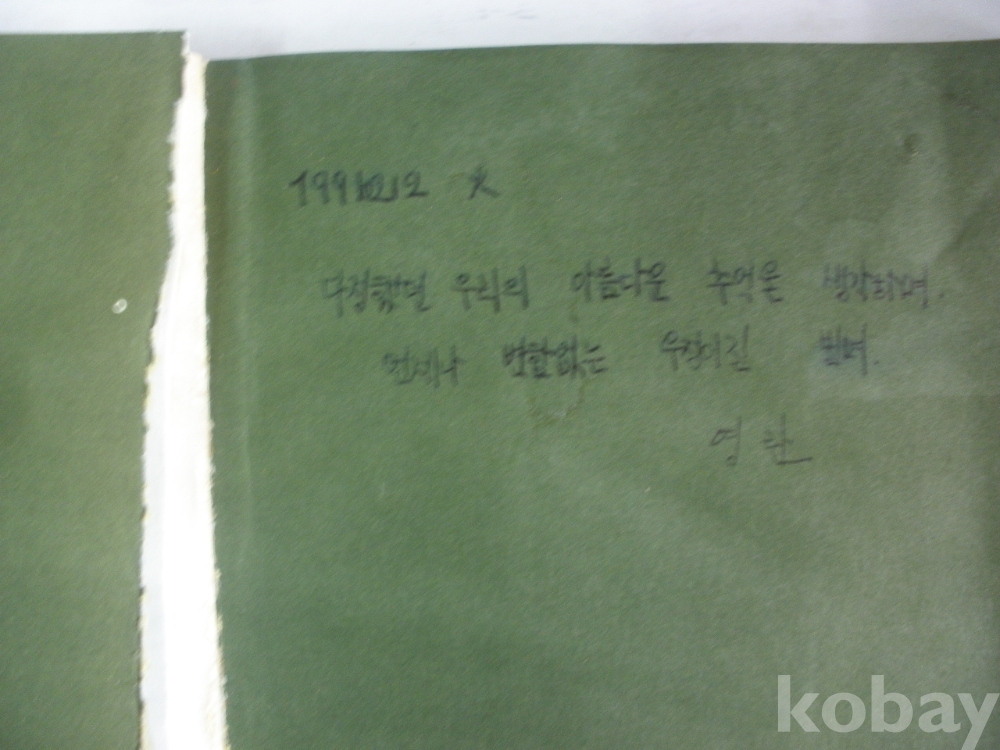 火
다정했던 우리의 아름다운 추억을 생각하며.
언제나 변함없는 우정이길 빌며.
영란
kobay